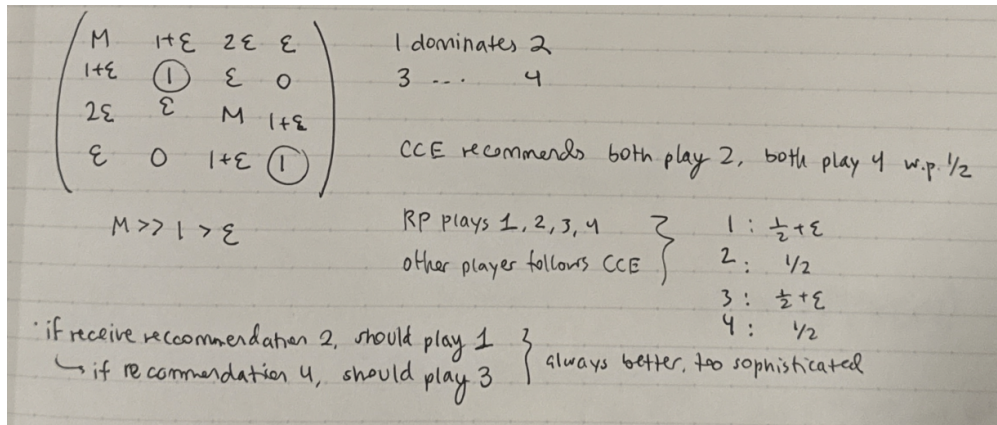 M 1+ε 2ε ε
1+ε 1 ε 0
2ε ε M 1+ε
ε 0 1+ε 1
M >> 1 > ε
1 dominates 2
3 .... 4
CCE recommends both play 2, both play 4 w.p. 1/2
RP plays 1, 2, 3, 4
other player follows CCE
1 : 1/2 + ε
2 : 1/2
3 : 1/2 + ε
4 : 1/2
· if receive reccommendation 2, should play 1
↳ if recommendation 4, should play 3
always better, too sophisticated